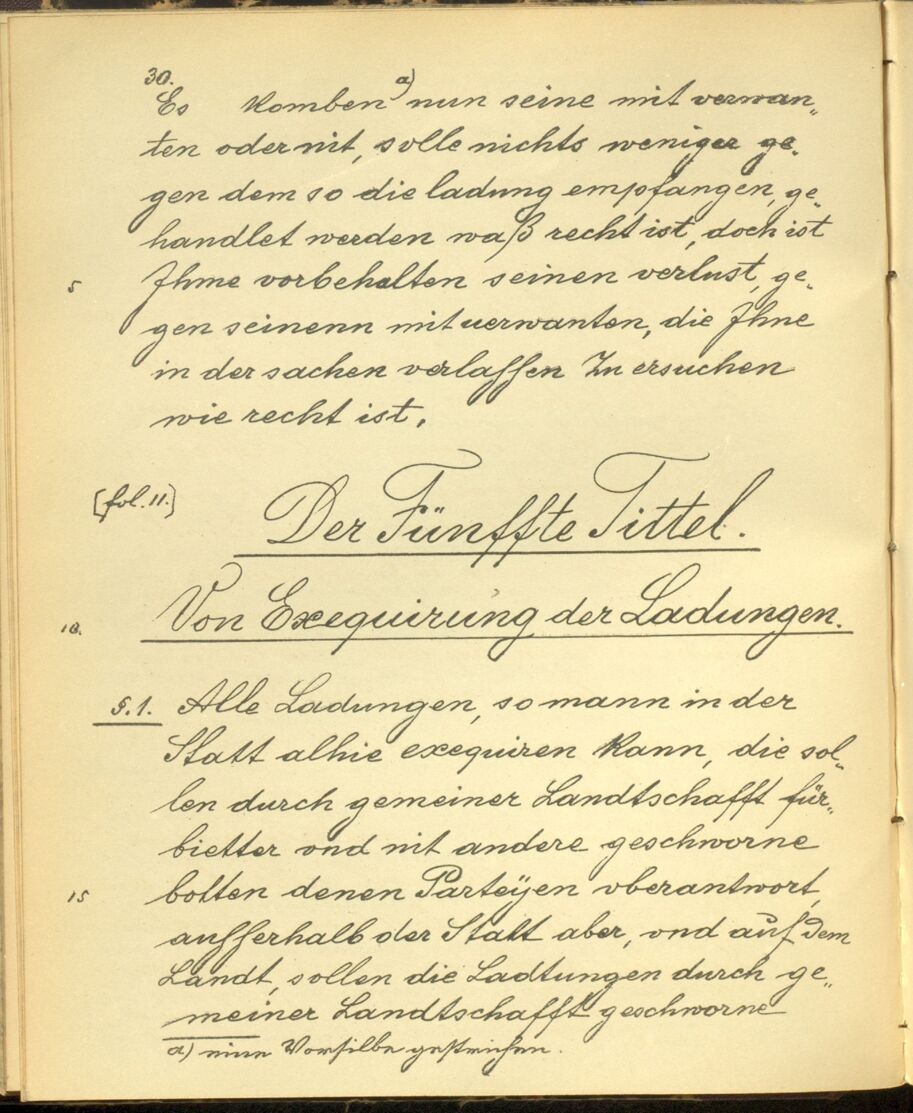 30.
Es komben a) nun seine mit verwan„
ten oder nit, solle nichts weniger ge„
gen dem so die ladung empfangen, ge„
handlet werden waß recht ist, doch ist
5 Ihme vorbehalten seinen verlust, ge„
gen seinenn mituerwanten, die Ihne
in der sachen verlassen Zu ersuchen
wie recht ist.
[fol. 11.] Der Fünffte Tittel.
10. Von Exequirung der Ladungen.
§. 1. Alle Ladungen, so mann in der
Statt alhie exequiren kann, die sol„
len durch gemeiner Landtschafft für„
bietter vnd nit andere geschworne
15 botten denen Parteÿen vberantwort,
ausserhalb der Statt aber, vnd auf dem
Landt, sollen die Ladtungen durch ge„
meiner Landtschafft geschworne
a) eine Vorsilbe gestrichen.